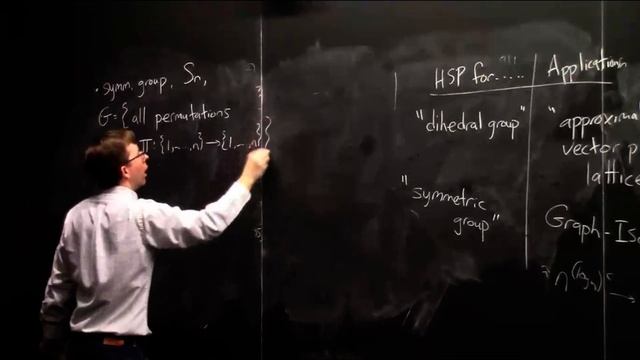 • symm. group, Sn,
G = { all permutations
π: {1,...,n} → {1,...,n} }
HSP for..... | Application
"dihedral group" | "approxima
vector p
lattice
"symmetric
group" | Graph-Iso
n^(log n) →